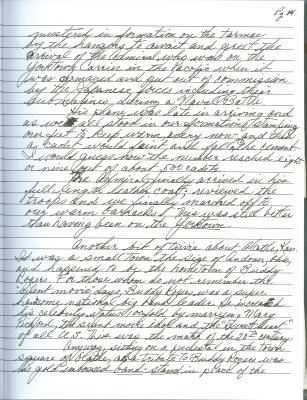 Pg 14
mustered in formation on the tarmac
by the hangars to await and greet the
arrival of the Admiral who was on the
Yorktown Carrier in the Pacific when it
was damaged and put out of commission
by the Japanese forces including their
submarines, during a Naval Battle
His plane was late in arriving and
as we all stood in our formations stamping
our feet to keep warm, every now and then
a Cadet would faint and fall to the cement
I would guess now the number reached eight
or nine out of about 500 cadets
The Admiral finally arrived in his
full length leather coat; reviewed the
troops and we finally marched off to
our warm barracks! This was still better
than having been on the Yorktown.
Another bit of trivia about Olathe, Kan.
It was a small town the size of Andover, Ohio,
and happened to be the hometown of Buddy
Rogers. For those whom do not remember the
silent movie days, Buddy Rogers was a super
handsome national big band leader. He increased
his celebrity status by marrying Mary
Pickford, the silent movie idol and the "Sweetheart"
of all U.S. This was the mark of the 20th century.
Anyway, sitting on a pedestal in the town
square of Olathe, as a tribute to Buddy Rogers was
his gold embossed band stand in place of the